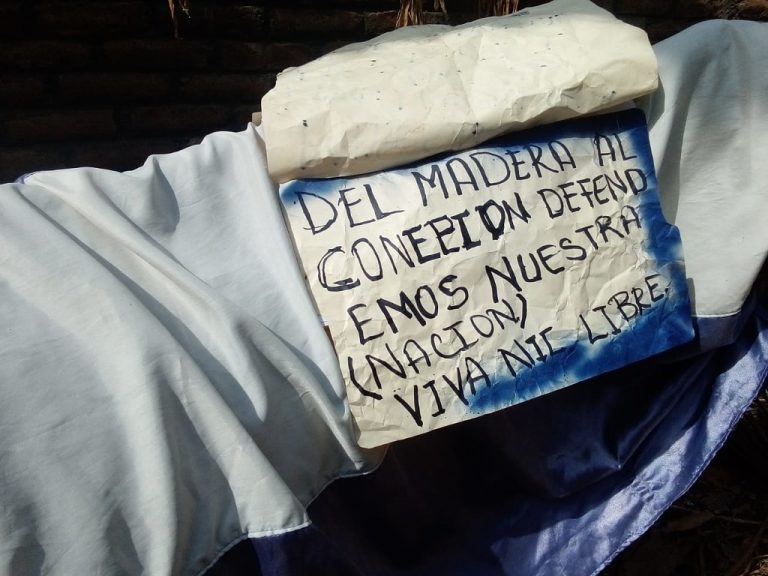 DEL MADERA AL
CONEPION DEFEND
EMOS NUESTRA
(NACION)
VIVA NIC LIBRE.